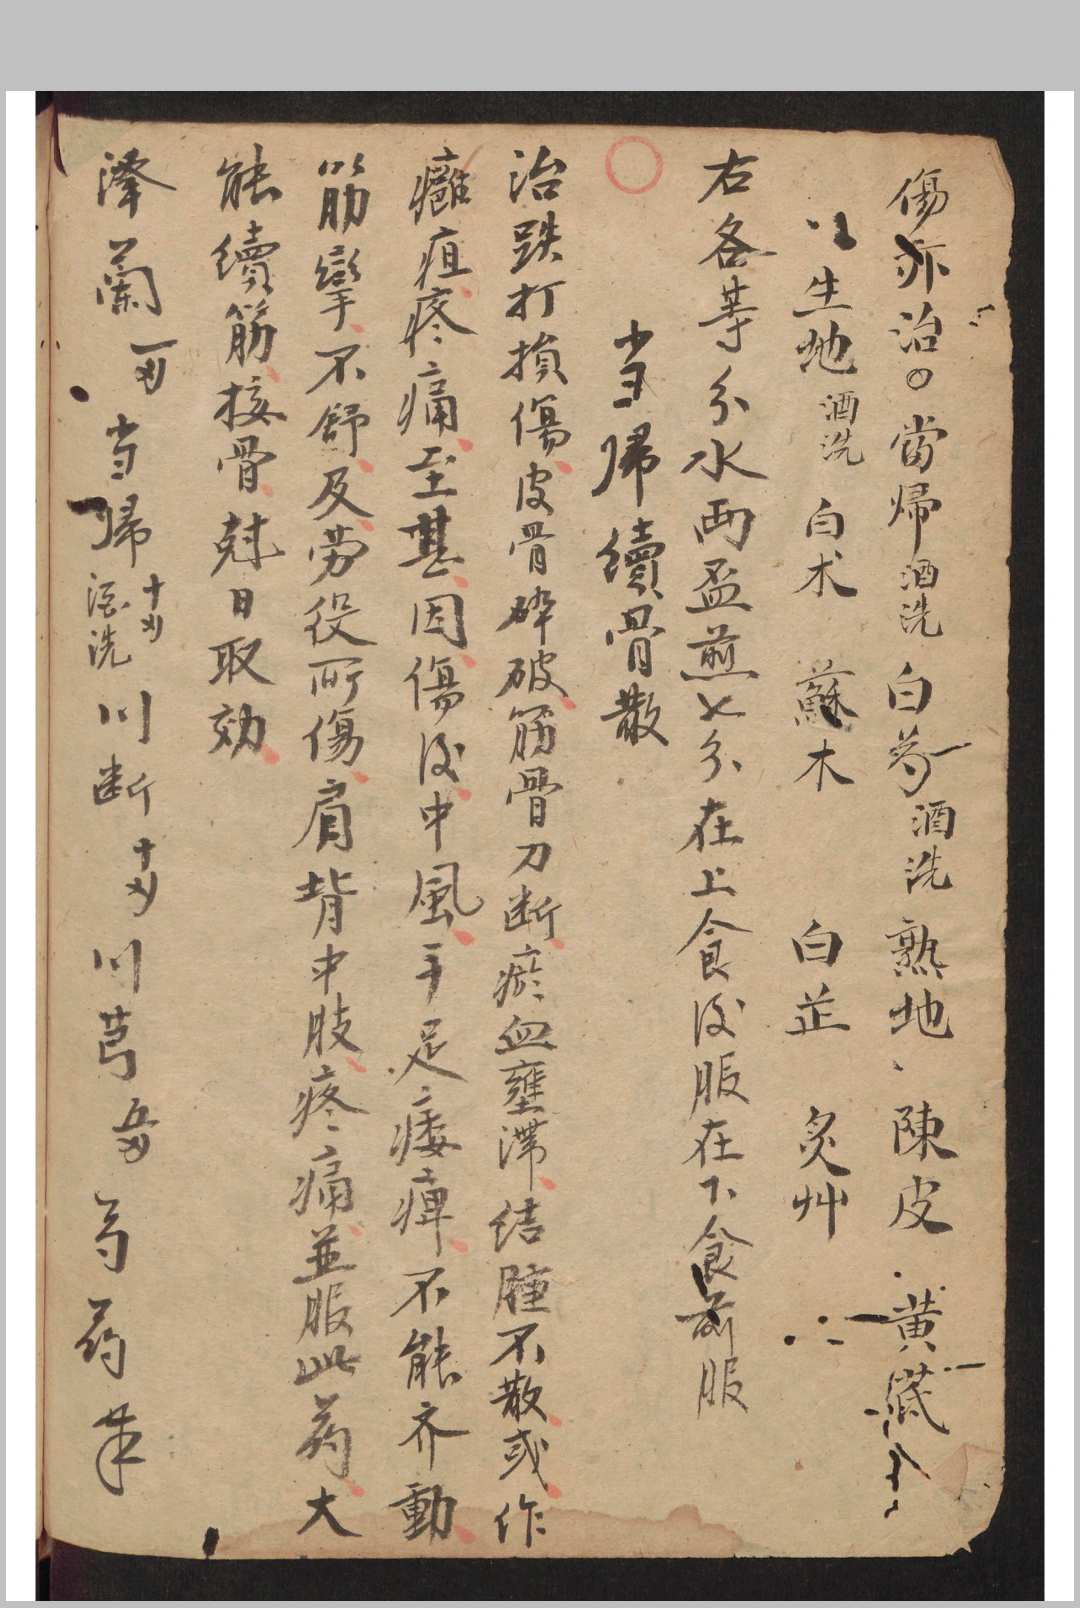 傷亦治。當帰酒洗 白芍酒洗 熟地、陳皮 黄
生地酒洗 白朮 蘇木 白芷 炙艸
右各等分水两盃煎七分在上食后服在下食前服
当帰續骨散
治跌打損傷皮骨碎破筋骨刀断瘀血壅滯結腫不散或作
癰疽疼痛至甚因傷后中風手足痿痺不能齐動
筋攣不舒及劳役所傷肩背中肢疼痛並服此药大
能續筋接骨尅日取効
澤蘭 当帰酒洗 川断 川芎 芍药